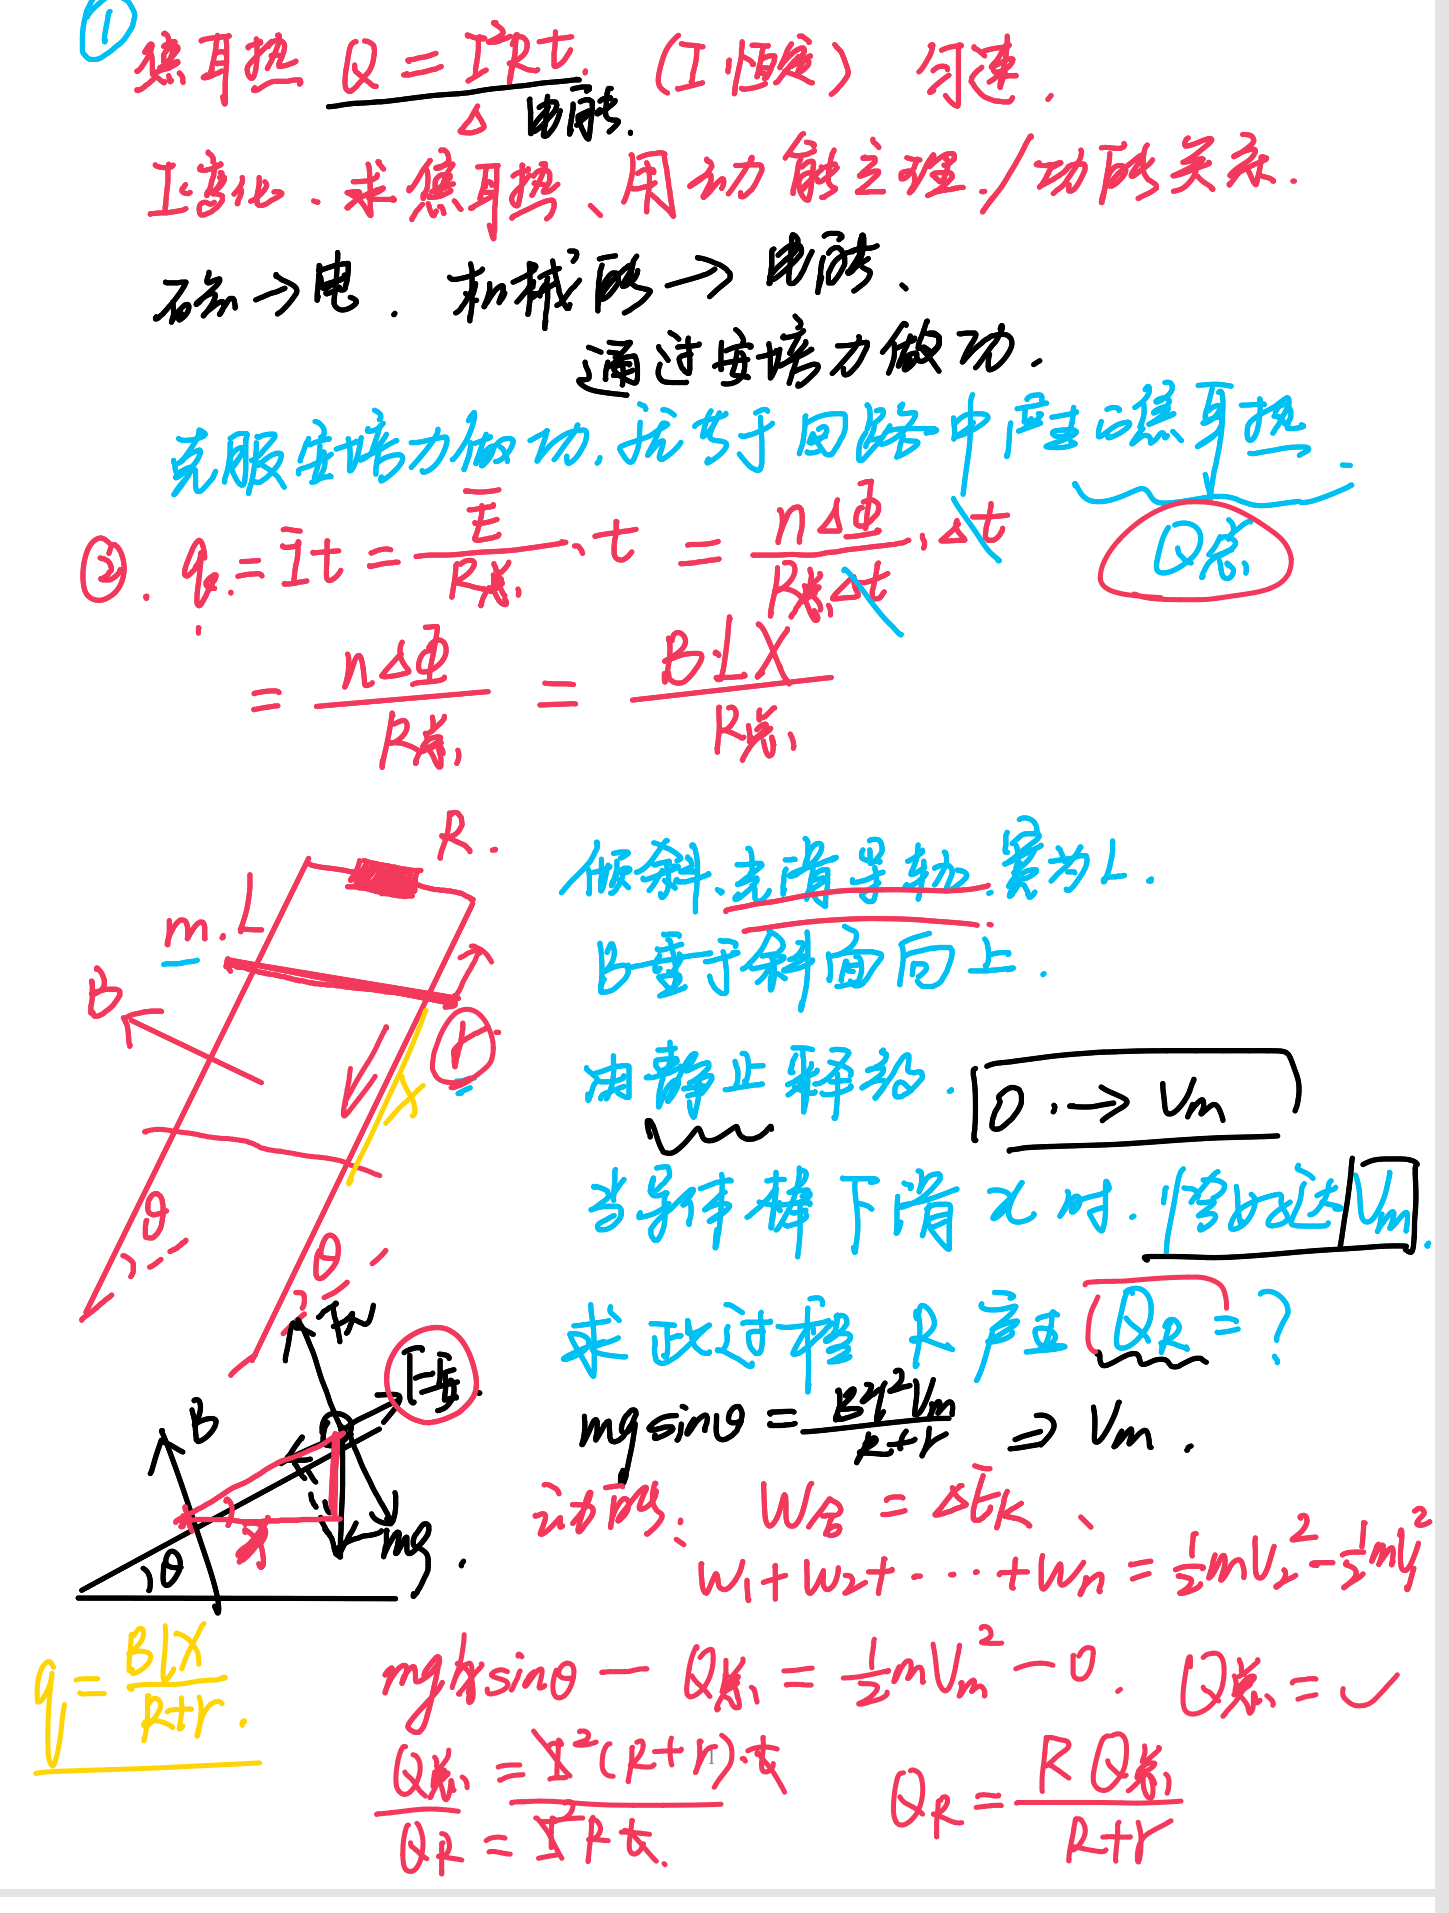 ①
焦耳热 Q = I²Rt. (I恒定) 匀速.
电能.
I变化、求焦耳热、用动能定理./功能关系.
磁→电. 机械能→电能、
通过安培力做功.
克服安培力做功,就等于回路中产生的焦耳热.
Q总.
②. q = I̅t = E̅/R总 · t = nΔΦ/R总Δt · Δt
= nΔΦ/R总 = B·LX/R总
R.
m. L
B
r
X
θ
θ
倾斜、光滑导轨. 宽为L.
B垂于斜面向上.
由静止释放. 0 → Vm
当导体棒下滑 x 时. 恰好达 Vm.
求此过程 R 产生 QR = ?
FN
F安.
B
mg.
x
θ
mg sinθ = B²L²Vm/R+r ⇒ Vm.
动能、 W合 = ΔEK、
W1+W2+ ····+Wn = ½mV2² - ½mV1²
q = BLX/R+r.
mg x sinθ - Q总 = ½mVm² - 0. Q总 = ✓
Q总/QR = I²(R+r)·t/I²Rt.
QR = R Q总/R+r